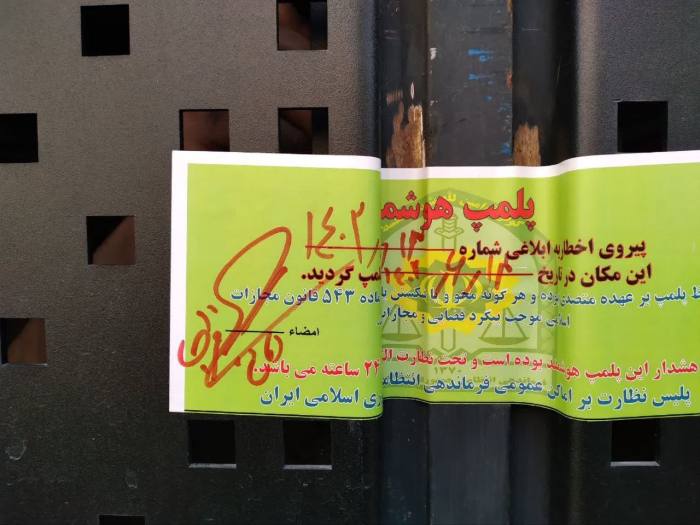 پلمپ هوشم
پیروی اخطاریه ابلاغی شماره ۱۴۰۳
این مکان در تاریخ ۱۴۰۳/۶/۱۳ مپ گردید.
ظ پلمپ بر عهده متصدی بوده و هر گونه محو و یا شکستن پا ماده ۵۴۳ قانون مجازات
اسلامی موجب پیگرد قضایی و مجازات
امضاء
هشدار این پلمپ هوشمند بوده است و تحت نظارت ال ۲۴ ساعته می باشد.
پلیس نظارت بر اماکن عمومی فرماندهی انتظام ری اسلامی ایران
۱۳۷۰